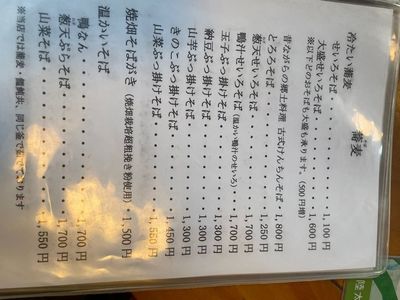 蕎麦
冷たい蕎麦
せいろそば・・・・・・・・1,100円
大盛せいろそば・・・・・・1,600円
※以下どのおそばも大盛も承ります。(500円増)
昔ながらの郷土料理 古式けんちんそば 1,800円
とろろそば・・・・・・・・1,250円
葱天せいろそば・・・・・・1,700円
鴨汁せいろそば(温かい鴨汁のせいろ)・1,700円
玉子ぶっ掛けそば・・・・・1,300円
納豆ぶっ掛けそば・・・・・1,300円
山芋ぶっ掛けそば・・・・・1,300円
きのこぶっ掛けそば・・・・1,450円
山菜ぶっ掛けそば・・・・・1,550円
焼畑そばがき(焼畑栽培超粗挽き粉使用)・1,500円
温かいそば
鴨なん・・・・・・・・・・1,700円
葱天ぷらそば・・・・・・・1,700円
山菜そば・・・・・・・・・1,550円
※当店では蕎麦・饂飩共、同じ釜で茹でております